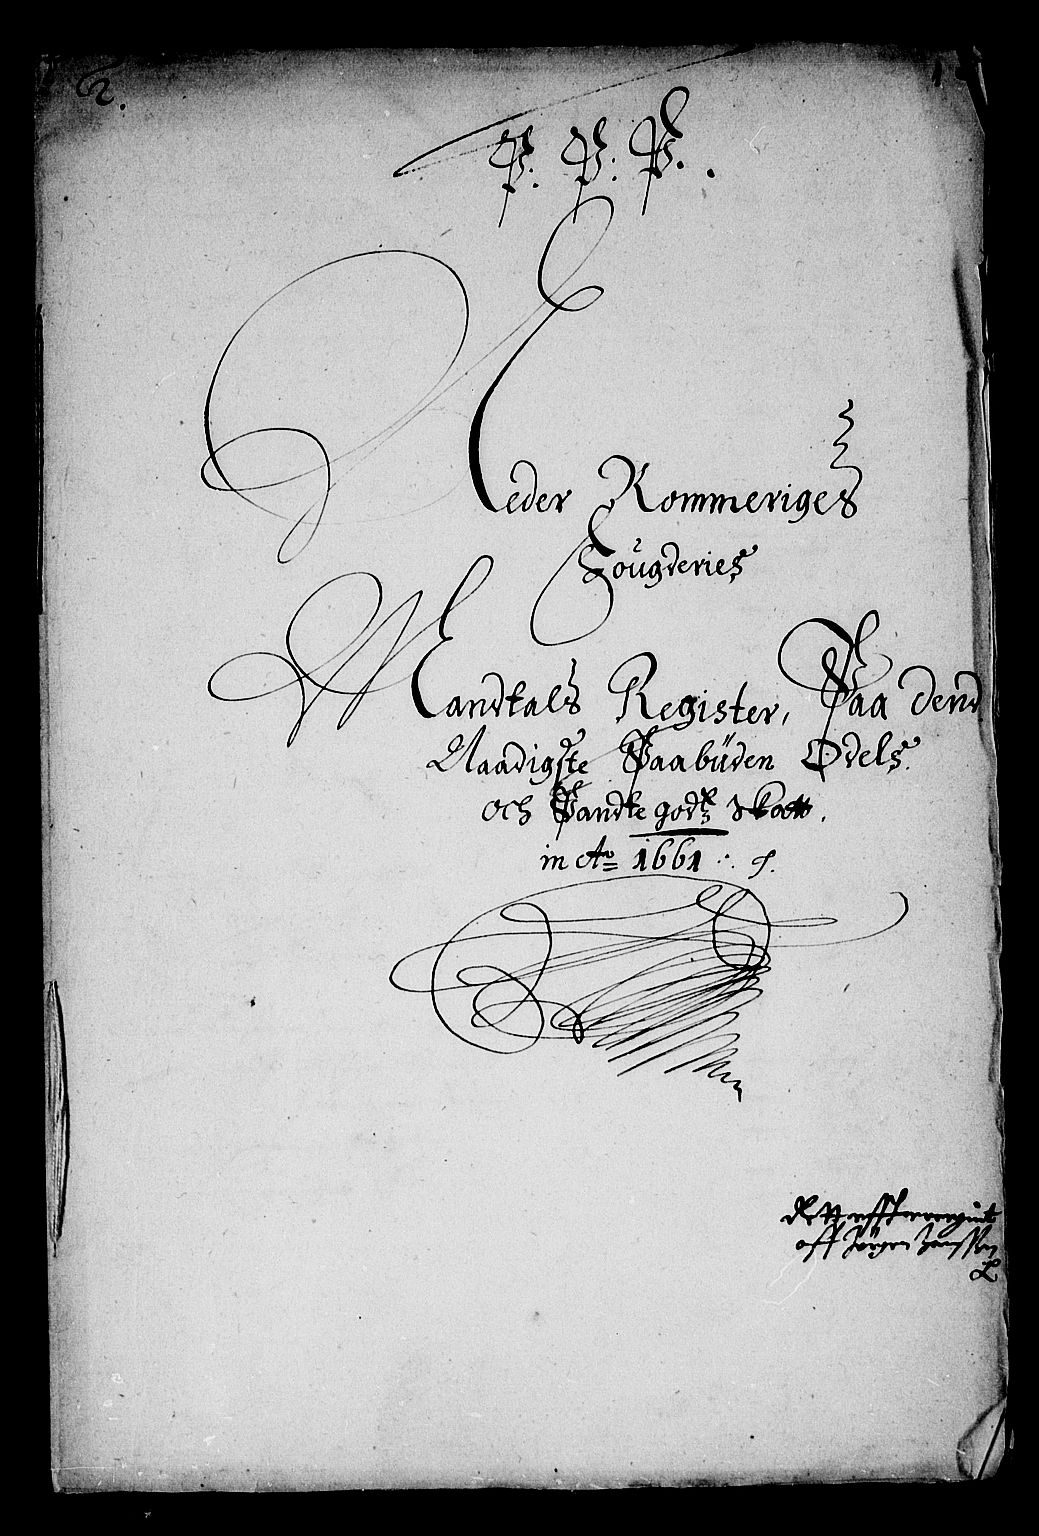 2.
P. P. P.
Neder Rommeriges
Fougderies
Mandtals Register, Paa dend
Naadigste Paabüden Odels
och Pandte godtz Skatt.
in Ao 1661
off Jørgen